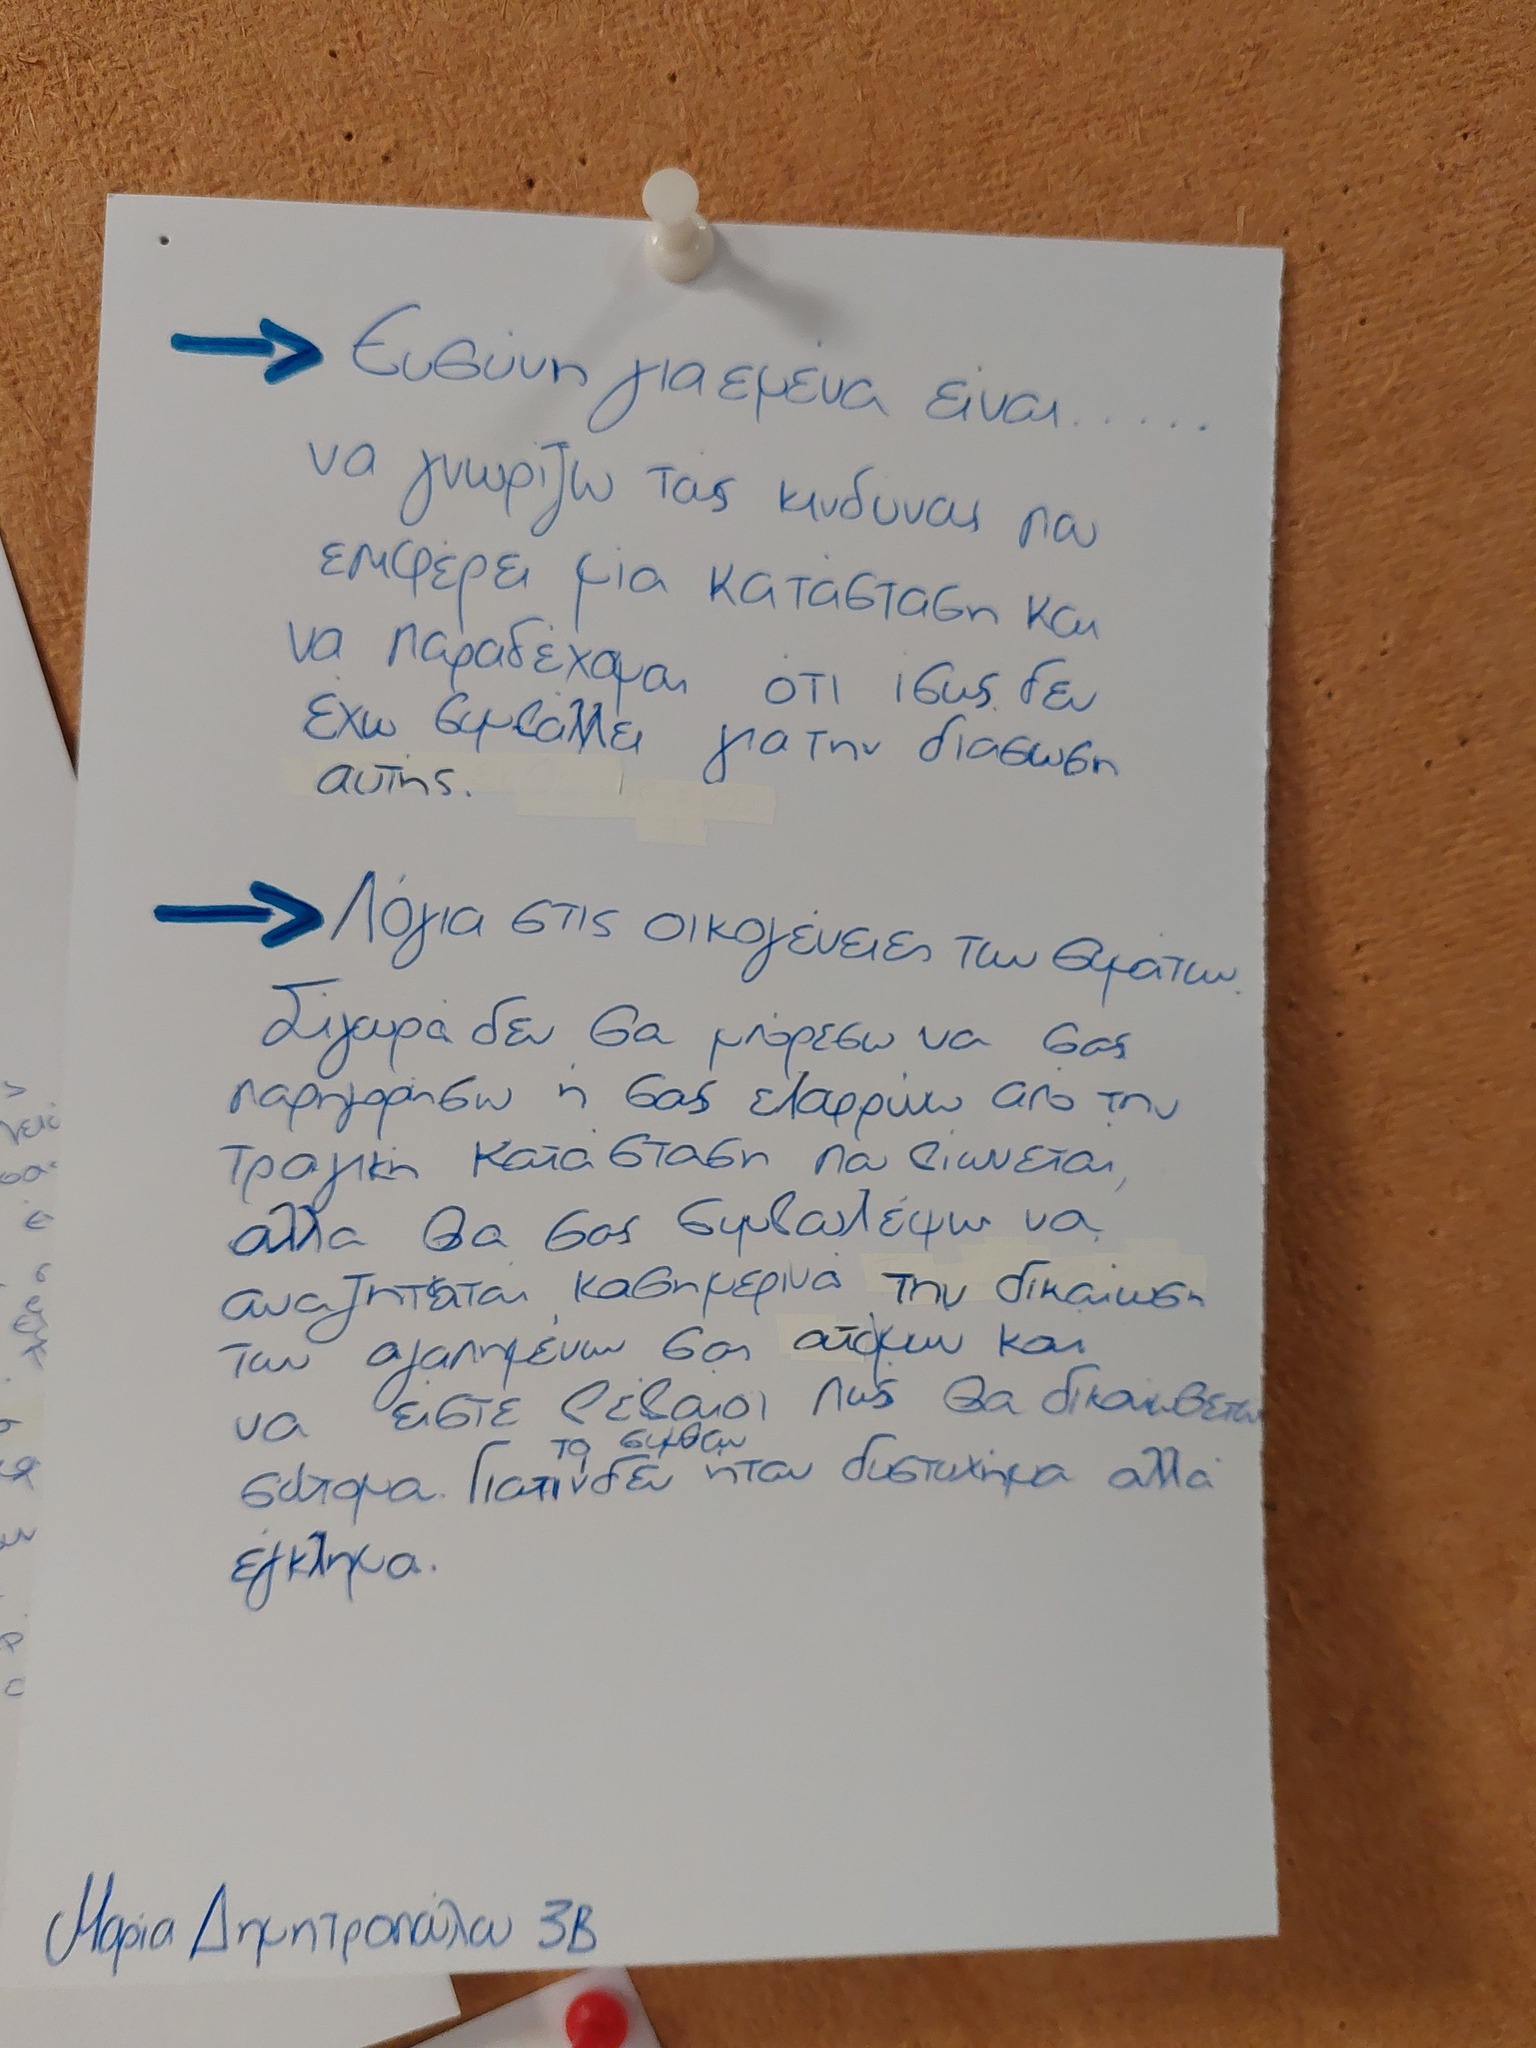 → Ευθύνη για εμένα είναι......
να γνωρίζω τους κινδύνους που
επιφέρει μια κατάσταση και
να παραδέχομαι ότι ίσως δεν
έχω συμβάλλει για την διάσωση
αυτής.
→ Λόγια στις οικογένειες των θυμάτων.
Σίγουρα δεν θα μπορέσω να σας
παρηγορήσω ή σας ελαφρύνω από την
τραγική κατάσταση που βιώνεται,
αλλά θα σας συμβουλέψω να
αναζητάται καθημερινά την δικαίωση
των αγαπημένων σας ατόμων και
να είστε βέβαιοι πως θα δικαιωθεί
το συμβάν
σύντομα. Γιατί δεν ήταν δυστύχημα αλλά
έγκλημα.
Μαρία Δημητροπούλου 3Β